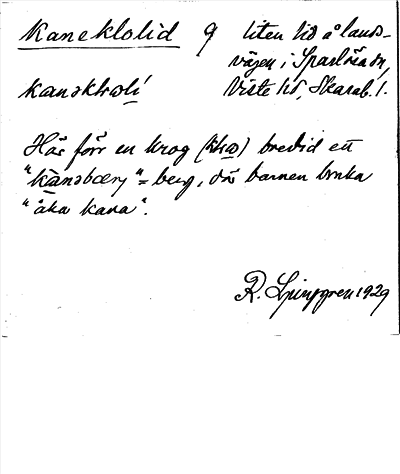 Kaneklolid 9 liten lid å lands-
vägen i Sparlösa sn,
Viste hd, Skarab. l.
Här förr en krog bredvid ett
"kanəbærj" = berg, där barnen bruka
"åka kana".
R. Ljunggren 1929